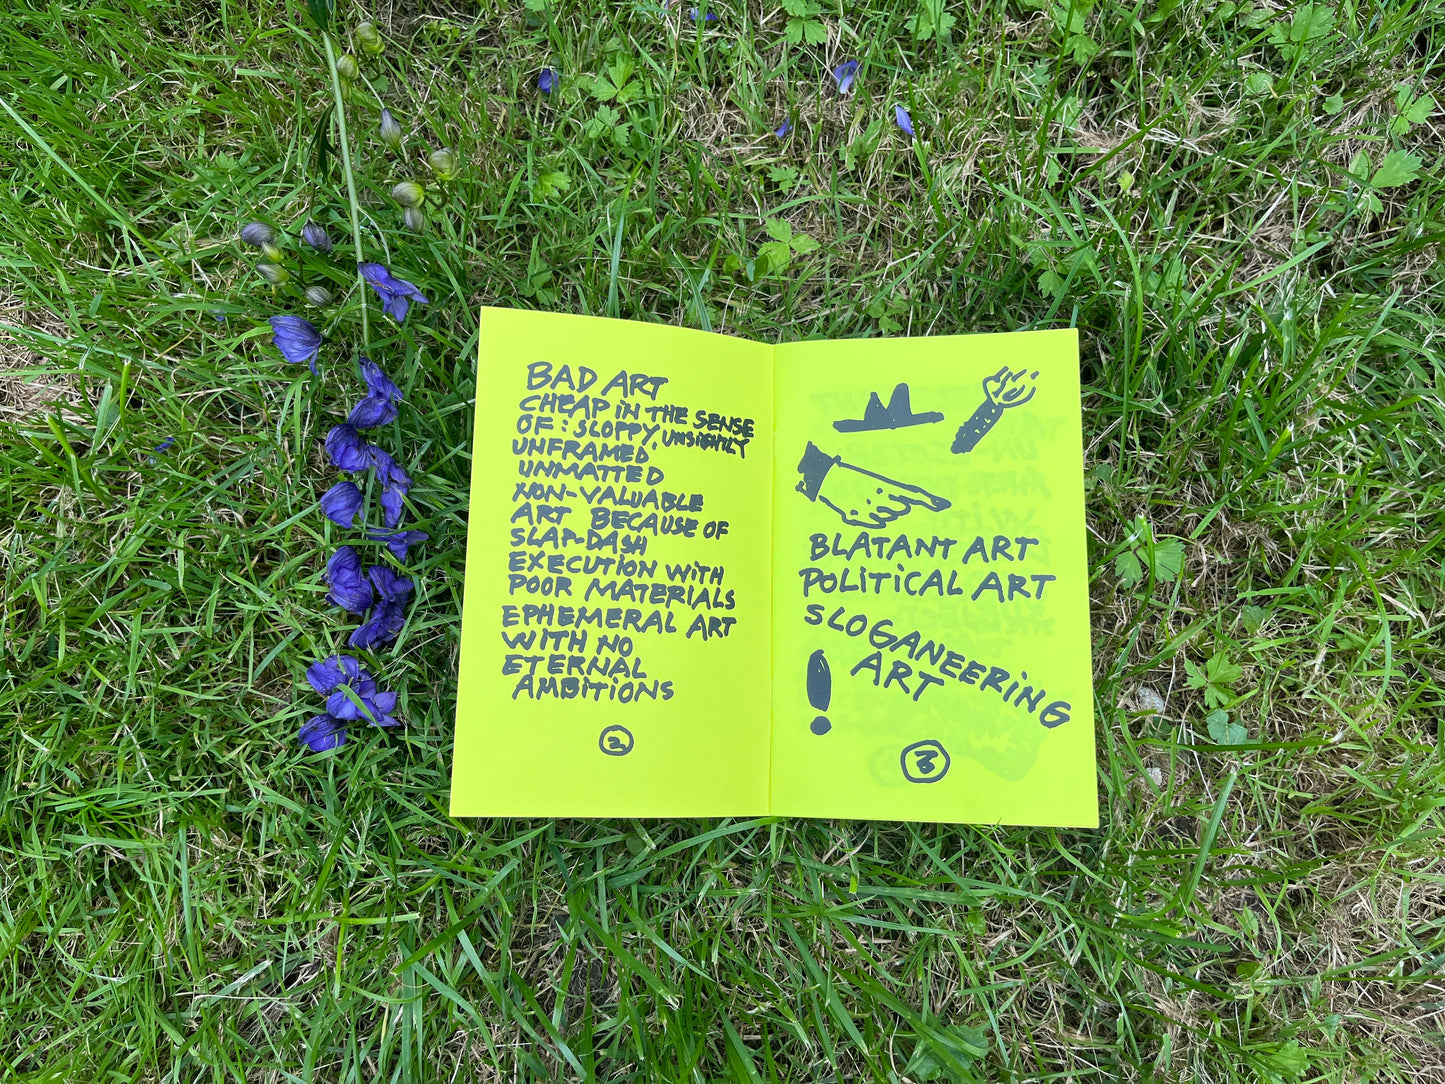 BAD ART
CHEAP IN THE SENSE
OF: SLOPPY, UNSIGHTLY
UNFRAMED,
UNMATTED
NON-VALUABLE
ART BECAUSE OF
SLAP-DASH
EXECUTION WITH
POOR MATERIALS
EPHEMERAL ART
WITH NO
ETERNAL
AMBITIONS
2
BLATANT ART
POLITICAL ART
SLOGANEERING
ART
!
3